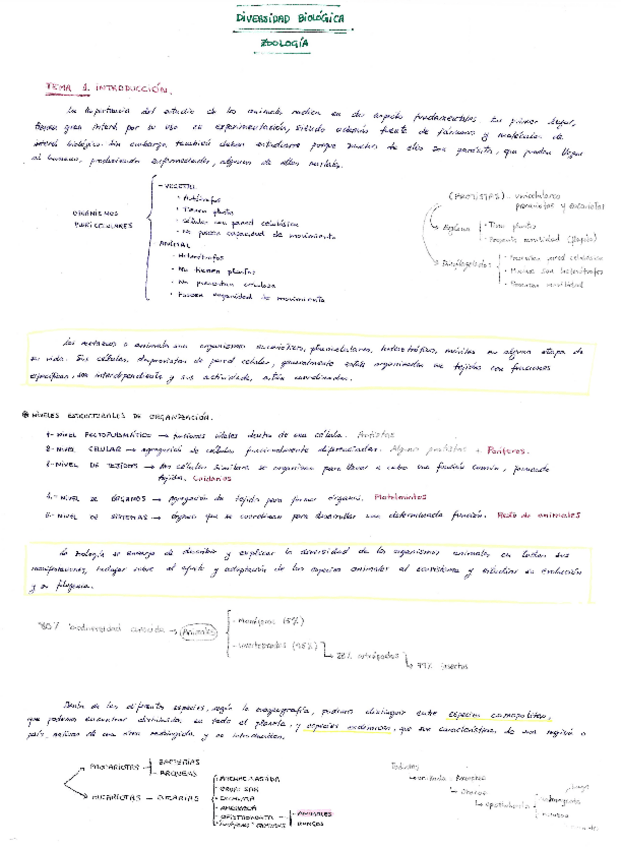 DIVERSIDAD BIOLÓGICA
ZOOLOGÍA
TEMA 1. INTRODUCCIÓN.
La importancia del estudio de los animales radica en dos aspectos fundamentales. En primer lugar,
tienen gran interés por su uso en experimentación, siendo además fuente de fármacos y materiales de
interés biológico. Sin embargo, también deben estudiarse porque muchos de ellos son parásitos, que pueden llegar
al humano, produciendo enfermedades, algunas de ellas mortales.
ORGANISMOS
PLURICELULARES
- VEGETAL
• Autótrofos
• Tienen plastos
• Células con pared celulósica
• No poseen capacidad de movimiento
ANIMAL
• Heterótrofos
• No tienen plastos
• No presentan celulosa
• Poseen capacidad de movimiento
(PROTISTAS) unicelulares
procariotas y eucariotas
Euglena
• Tiene plastos
• Presenta movilidad (flagelo)
Dinoflagelados
• Presentan pared celulósica
• Muchos son heterótrofos
• Presentan movilidad
Los metazoos o animales son organismos eucarióticos, pluricelulares, heterotróficos, móviles en alguna etapa de
su vida. Sus células, desprovistas de pared celular, generalmente están organizadas en tejidos con funciones
específicas, son interdependientes y sus actividades, están coordinadas.
NIVELES ESTRUCTURALES DE ORGANIZACIÓN.
1- NIVEL PROTOPLASMÁTICO → funciones vitales dentro de una célula. Protistas
2- NIVEL CELULAR → agregación de células funcionalmente diferenciadas. Algunos protistas + Poríferos.
3- NIVEL DE TEJIDOS → las células similares se organizan para llevar a cabo una función común, formando
tejidos. Cnidarios
4- NIVEL DE ÓRGANOS → agregación de tejidos para formar órganos. Platelmintos
5- NIVEL DE SISTEMAS → órganos que se coordinan para desarrollar una determinada función. Resto de animales
La zoología se encarga de describir y explicar la diversidad de los organismos animales en todas sus
manifestaciones, trabajar sobre el ajuste y adaptación de las especies animales al ecosistema y estudiar su evolución
y su filogenia.
80% biodiversidad conocida → Animales
- mamíferos (5%)
- invertebrados (95%)
28% artrópodos
99% insectos
Dentro de las diferentes especies, según la biogeografía, podemos distinguir entre especies cosmopolitas,
que podemos encontrar distribuidas en todo el planeta, y especies endémicas, que son características de una región o
país, nativas de una área restringida y no introducidas.
PROCARIOTAS
BACTERIAS
ARQUEAS
EUCARIOTAS
AMEBOZOA
OPISTHOKONTA
ANIMALES
HONGOS